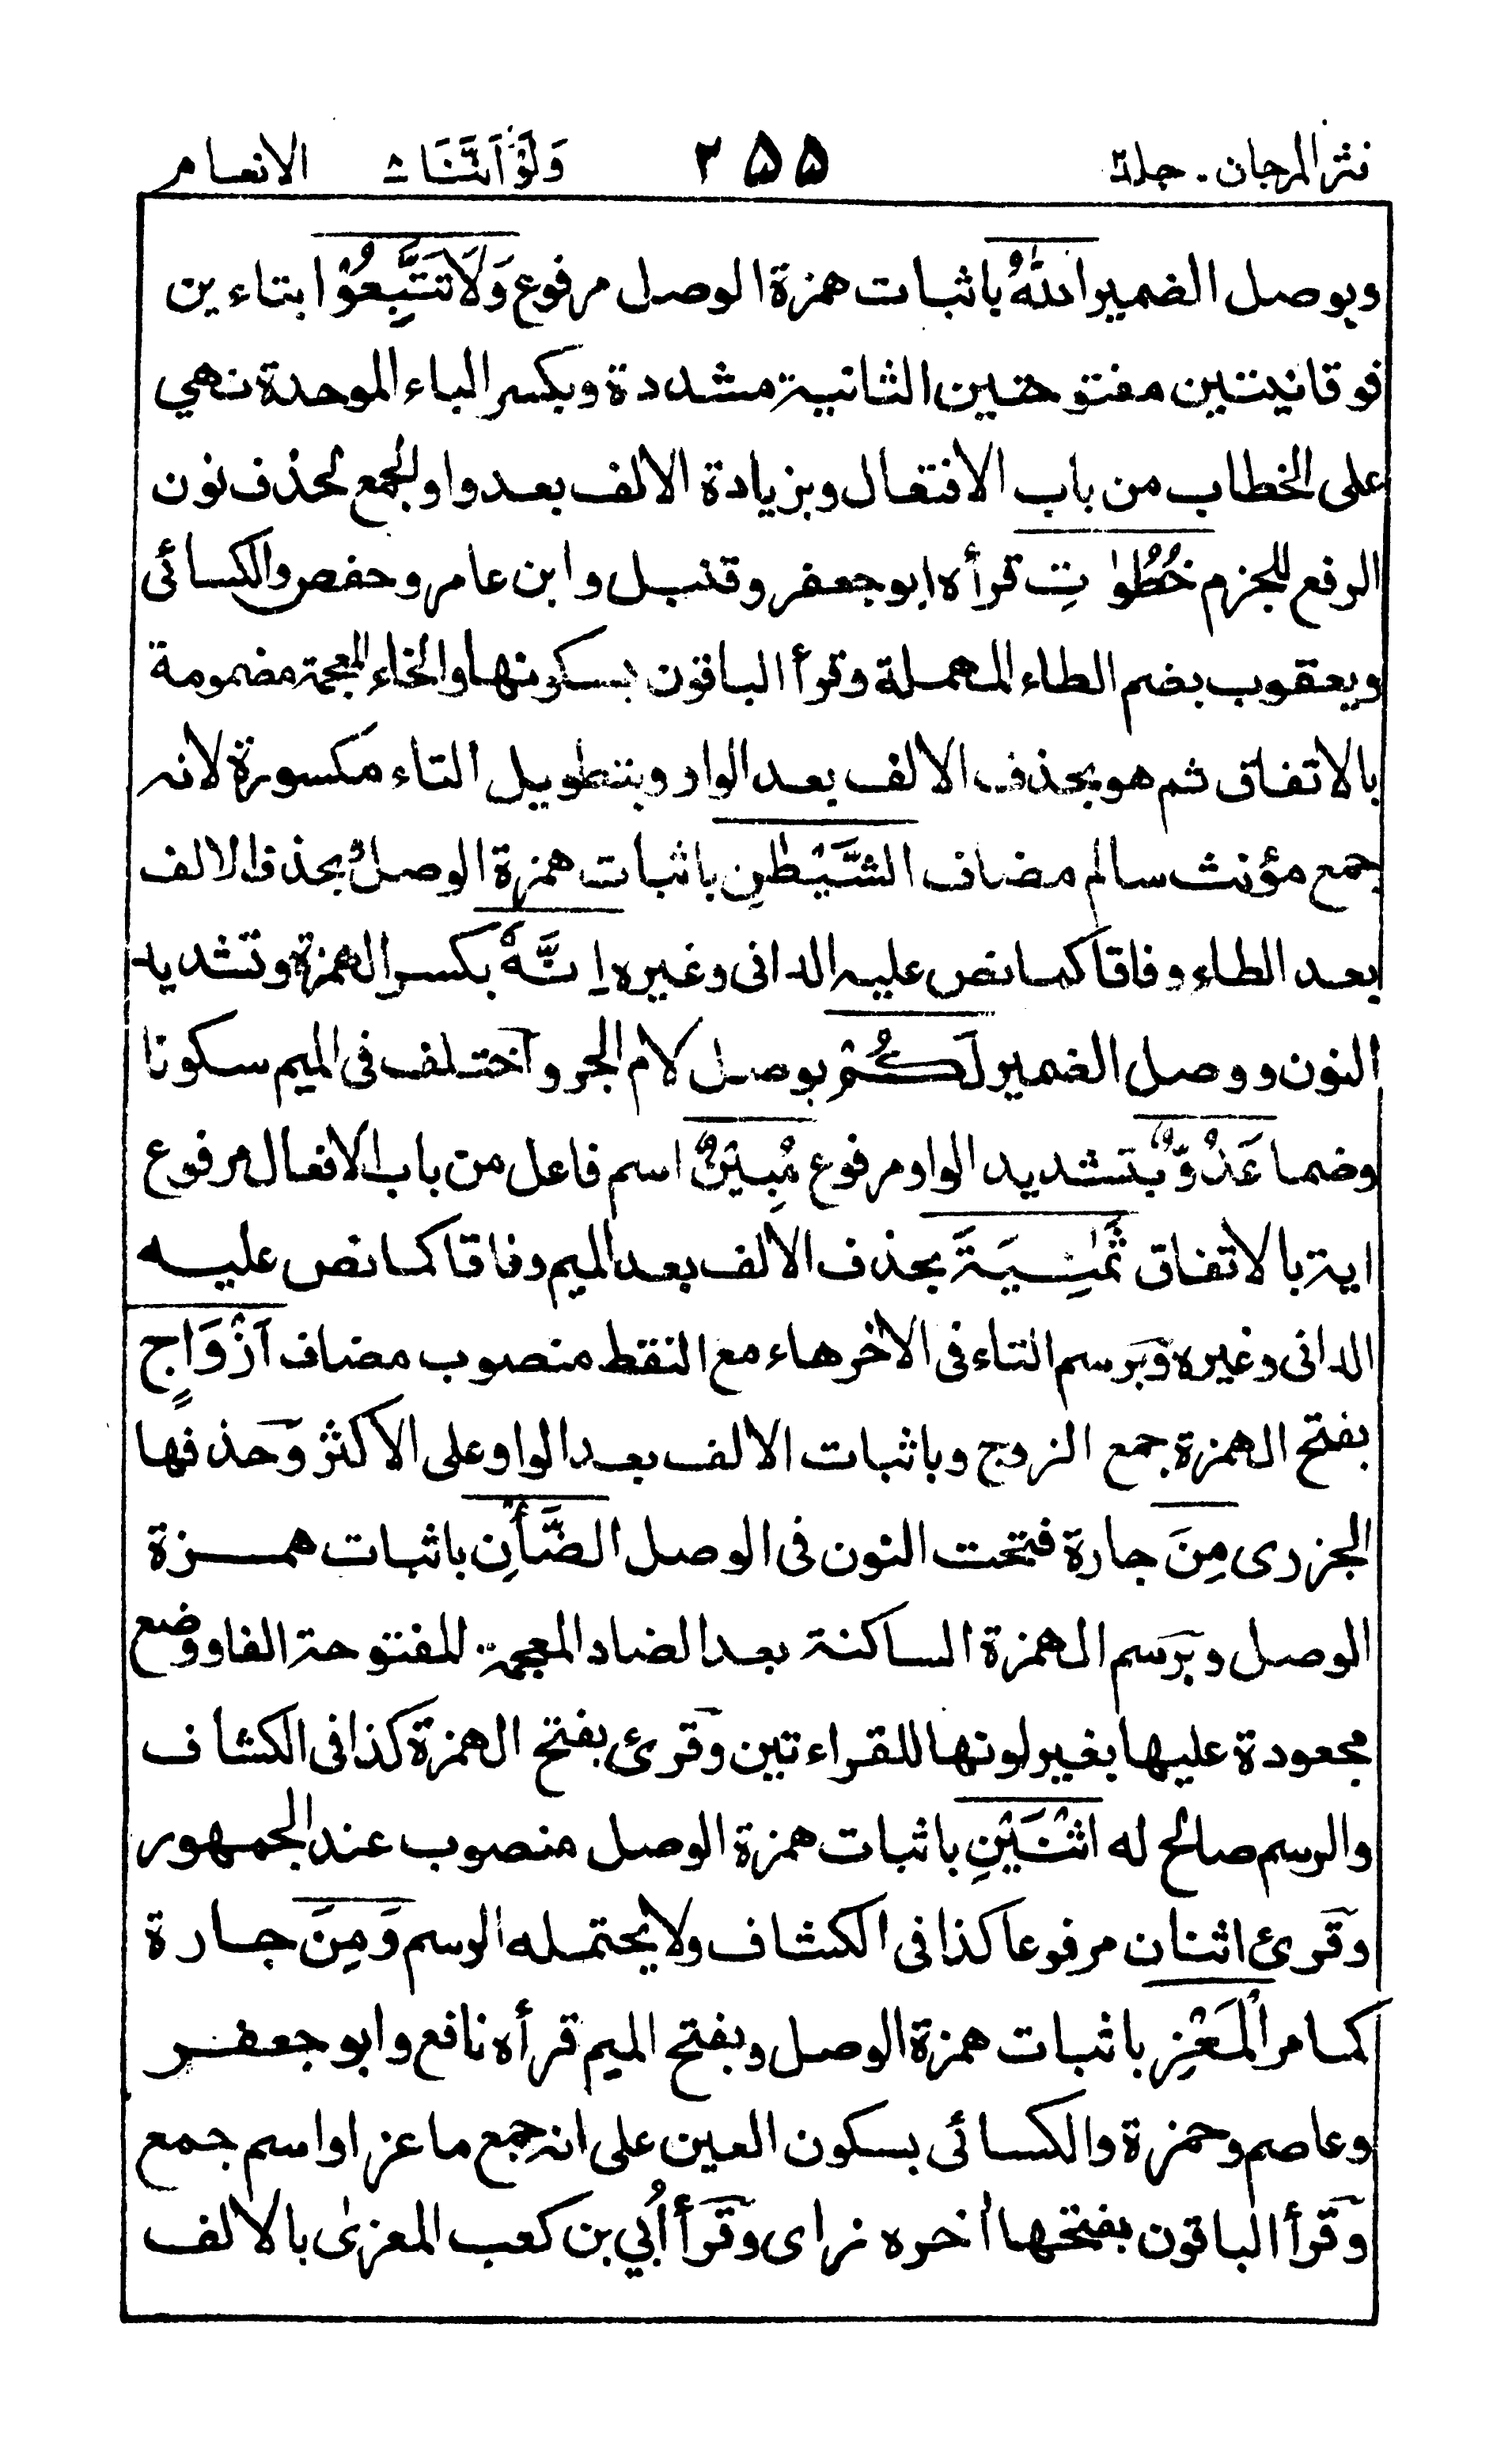 نثر المرجان . جلد٢ ٢٥٥ وَلَوْ اَنَّنَا ٨ الانعام
وبوصل الضمير اللّٰهُ باثبات همزة الوصل مرفوع وَلَا تَتَّبِعُوْا بتاءين
فوقانيتين مفتوحتين الثانية مشددة وبكسر الباء الموحدة نهي
على الخطاب من باب الافتعال وبزيادة الالف بعد واو الجمع لحذف نون
الرفع للجزم خُطُوٰتِ قرأه ابو جعفر وقنبل وابن عامر وحفص والكسائى
ويعقوب بضم الطاء المهملة وقرأ الباقون بسكونها والخاء المعجمة مضمومة
بالاتفاق ثم هو بحذف الالف بعد الواو وبتطويل التاء مكسورة لانه
جمع مؤنث سالم مضاف الشَّيْطٰنِ باثبات همزة الوصل وبحذف الالف
بعد الطاء وفاقا كما نص عليه الدانى وغيره اِنَّهٗ بكسر الهمزة وتشديد
النون ووصل الضمير لَكُمْ بوصل لام الجر واختلف فى الميم سكونا
وضما عَدُوٌّ بتشديد الواو مرفوع مُبِيْنٌ اسم فاعل من باب الافعال مرفوع
اية بالاتفاق ثَمٰنِيَةَ بحذف الالف بعد الميم وفاقا كما نص عليه
الدانى وغيره وبرسم التاء فى الاخر هاء مع النقط منصوب مضاف اَزْوَاجٍ
بفتح الهمزة جمع الزوج وباثبات الالف بعد الواو على الاكثر وحذفها
الجزرى مِنَ جارة فتحت النون فى الوصل الضَّأْنِ باثبات همزة
الوصل وبرسم الهمزة الساكنة بعد الضاد المعجمة المفتوحة الفا ووضع
مجعودة عليها بغير لونها للقراءتين وقرئ بفتح الهمزة كذا فى الكشاف
والرسم صالح له اثْنَيْنِ باثبات همزة الوصل منصوب عند الجمهور
وقرئ اثنان مرفوعا كذا فى الكشاف ولا يحتمله الرسم وَمِنَ جارة
كما مر الْمَعْزِ باثبات همزة الوصل وبفتح الميم قرأه نافع وابو جعفر
وعاصم وحمزة والكسائى بسكون العين على انه جمع ماعز او اسم جمع
وقرأ الباقون بفتحها اخره زاى وقرأ اُبي بن كعب المعزىٰ بالالف